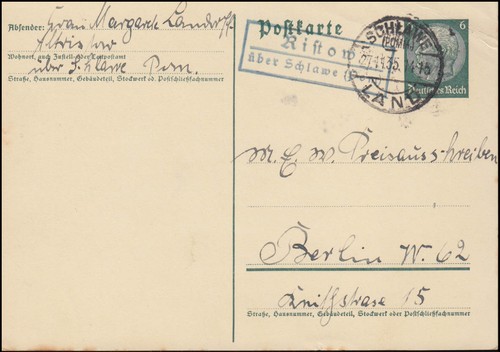 Absender: Frau Margarete
Altristow
Wohnort, auch Zustell- oder Leitpostamt
über Schlawe Pom.
Straße, Hausnummer, Gebäudeteil, Stockwerk od. Postschließfachnummer
Postkarte
Ristow
über Schlawe
SCHLAWE
(POMM)
LAND
6
Deutsches Reich
M. E. W. Preisausschreiben
Berlin W. 62
15
Straße, Hausnummer, Gebäudeteil, Stockwerk oder Postschließfachnummer